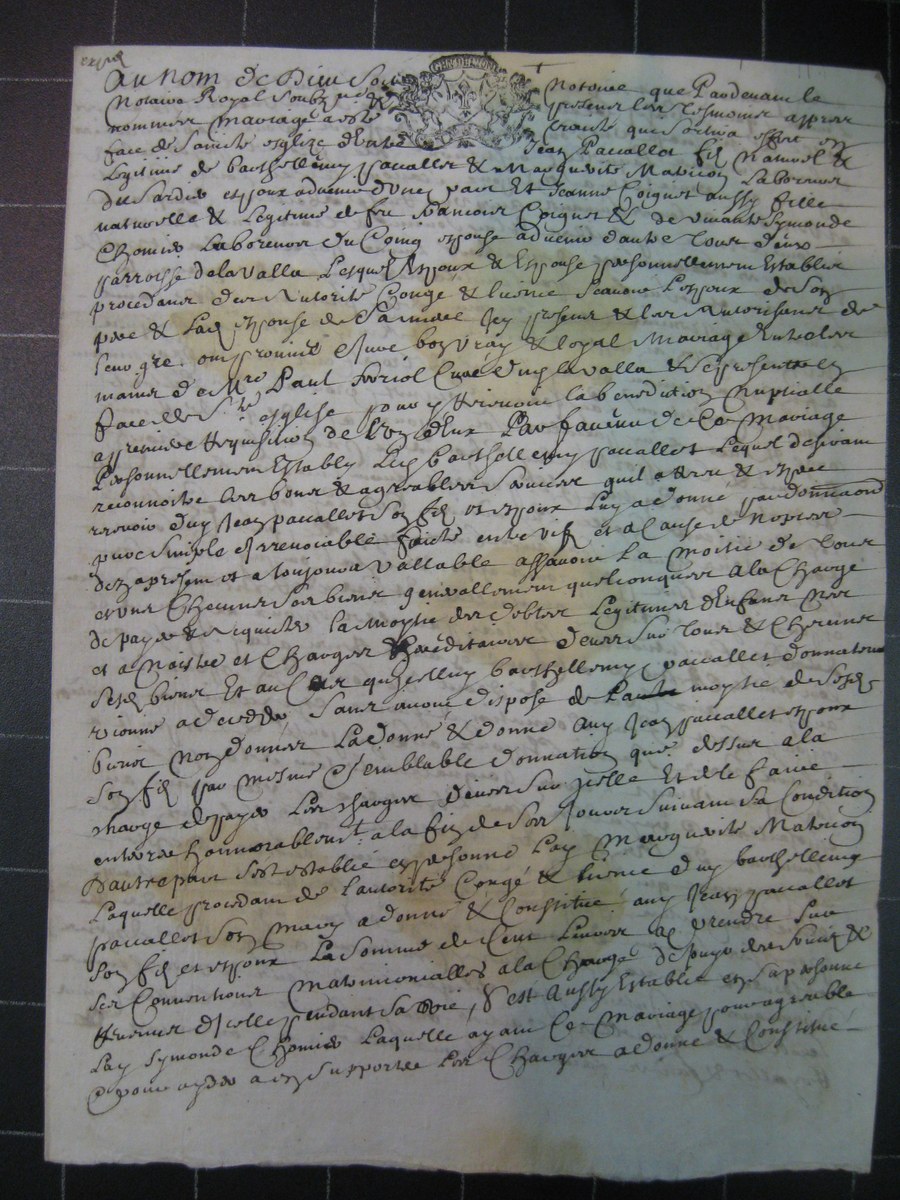 expedié
Au Nom de Dieu Soit Notoire que Pardevant le
Notaire Royal Soubzné & presens les tesmoins appres
nommes mariage a esté traité qui Sortira effect en
face de Sainte esglize Entre Jean Pacallet filz Naturel &
Legitime de barthellemy pacallet & Marguerite Matricon Laboreur
du Sardier espoux advenir d'une part Et Jeanne Coignet aussy fille
naturelle & Legitime de feu francois Coignet & de vivante Symonde
Chomier Laboreur du Coing espouse advenir d'autre tous deux
parroisse de la valla Lesquelz Espoux & Espouse personnellement Establis
procedans des Autorité Congé & licence Scavoir L'espoux de Son
pere & Lad espouse de Sa mere Icy presens & les Autorisans de
leur gré ont promis Esuré bon vray & loyal Mariage Entre les
mains de Mre Paul Curé dud la valla & Se presenter en
face de Ste esglise pour y Recevoir la benediction Nuptialle
a premiere Requisition de L'un d'Eux Par faveur de Ce Mariage
Personnellement Estably Led barthellemy pacallet Lequel desirant
reconnoitre les bons & agreables Services quil a Receu & espere
recevoir dud Jean pacallet Son filz et espoux Luy a donné par donnaon
pure Simple & irrevocable faicte entre vifz et a Cause de Nopces
dez apresent et a toujours vallable assavoir La Moitié de tous
et uns Chacuns Ses biens generallement quelconques a la Charge
de payer & acquitter la Moytie des debtes Legitimes d'Enfans Nez
et a Naistre et Charges hereditaires deues Sur tous & Chacuns
Sesd biens Et au Cas quicelluy barthellemy pacallet donnateur
vienne a deceder Sans avoir dispose de Lautre moytie de Sesd
biens Non donnes La donné & donne aud Jean pacallet espoux
Son filz par mesme & Semblable donnation que dessus a la
charge de payer Les charges deues Sur icelle Et de le faire
enterrer honnorablemt a la fin de Ses Jours Suivant Sa Condition
D'autre part S'est establie en personne Lad Marguerite Matricon
Laquelle procedant de L'autorité Congé & licence dud barthellemy
pacallet Son Mary a donné & Constitué aud Jean pacallet
Son filz et espoux La Somme de Cent Livres a prendre Sur
Ses Conventions Matrimonialles a la Charge de Jouyr des fruictz &
Revenus d'Icelle pendant Sa Vie, S'est Aussy Establie en Sa personne
Lad Symonde Chomier Laquelle ayant Ce Mariage pour agreable
& pour ayder a en Supporter Les Charges a donné & Constitué